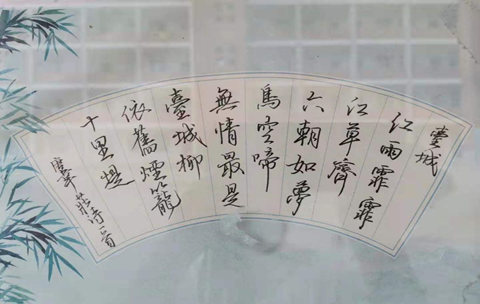 臺城
江雨霏霏
江草齊
六朝如夢
鳥空啼
無情最是
臺城柳
依舊煙籠
十里堤
莊詩一首